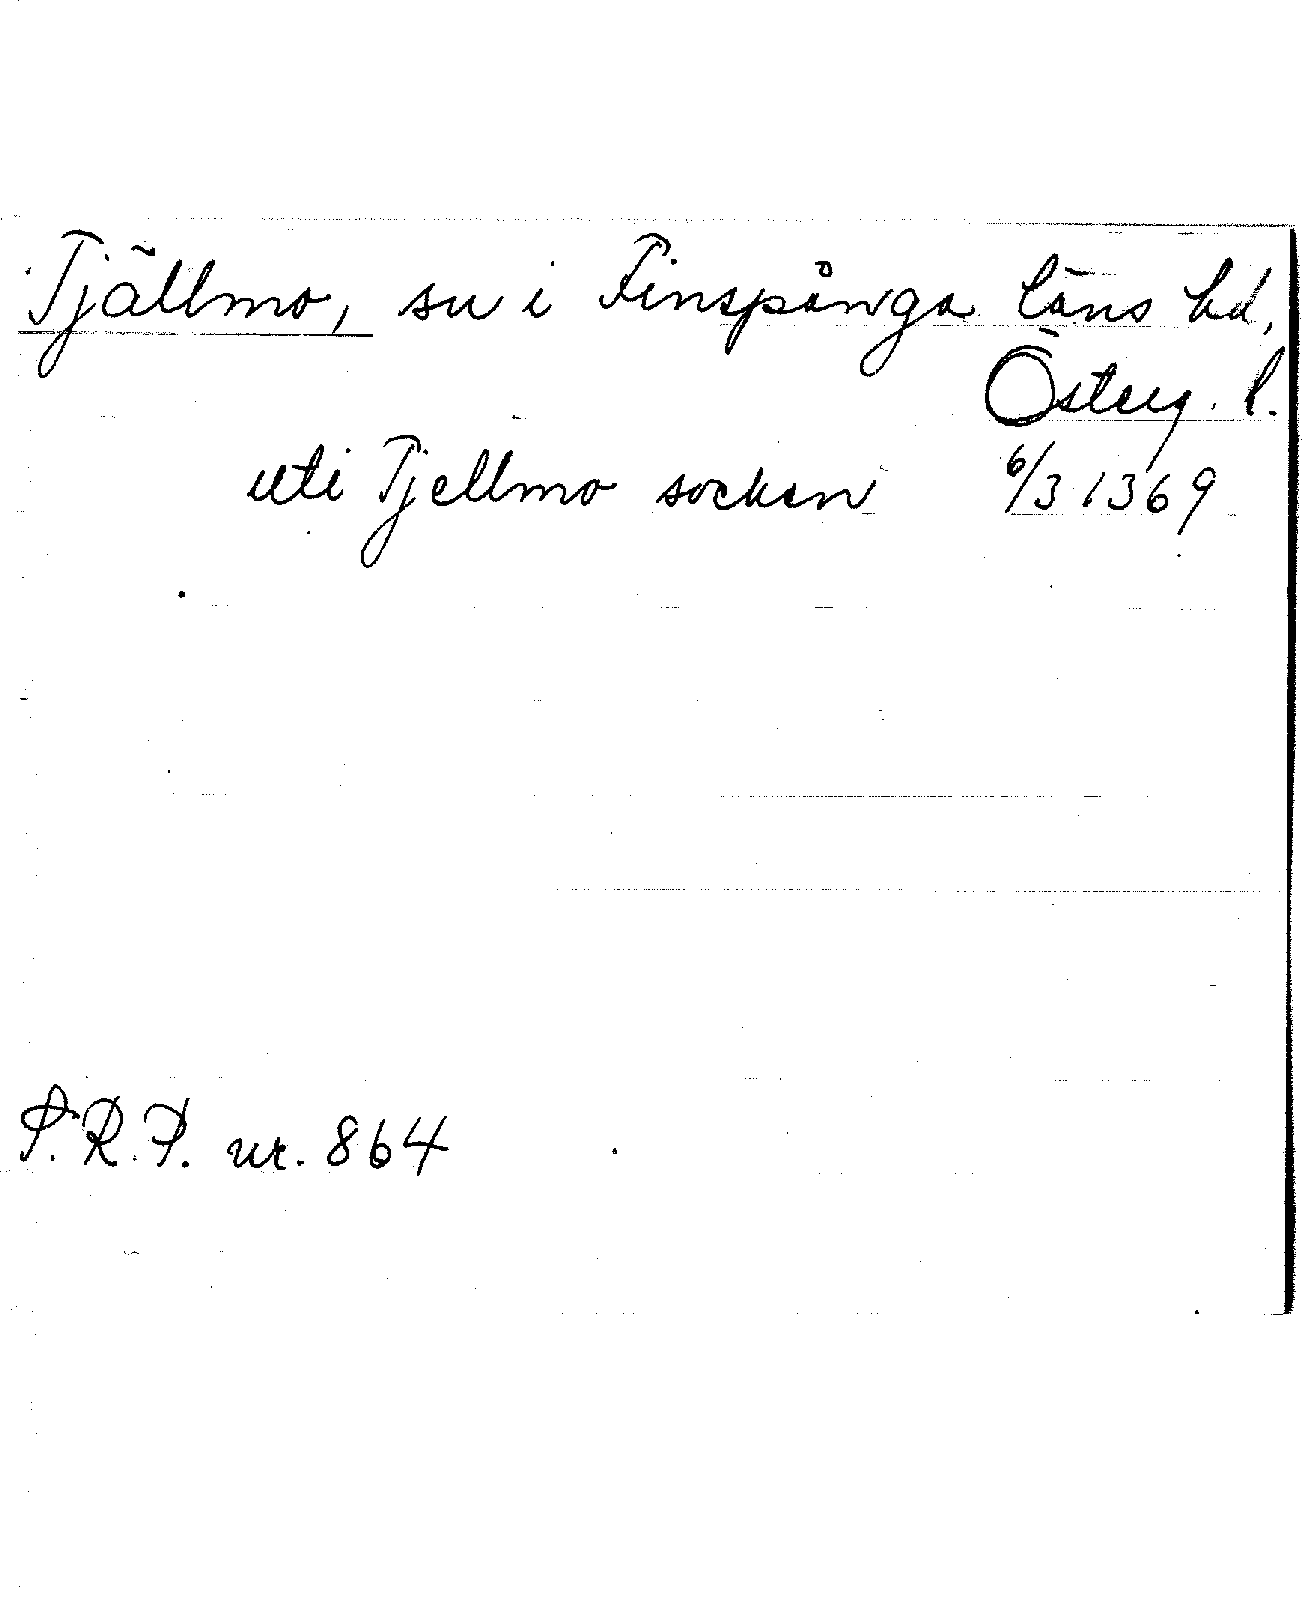 Tjällmo, sn i Finspånga läns hd,
Österg. l.
uti Tjellmo socken 6/3 1369
S.R.P. nr. 864